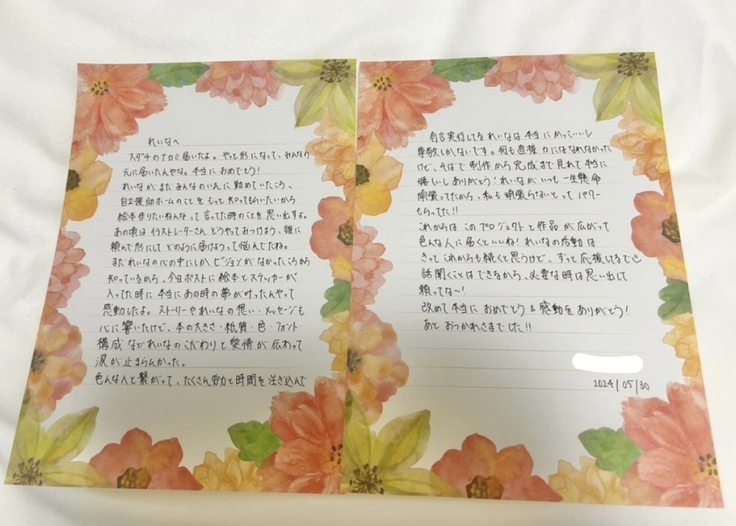 れいなへ
スダチのナカミ届いたよ。やっと形になって、みんなの
元に届いたんやな。本当におめでとう!
れいながまだみんなのいえに勤めていたころ、
自立援助ホームのことをもっと知ってもらいたいから
絵本作りたいねんなって言ってた時のことを思い出すよ。
あの頃はイラストレーターさんどうやってみつけよう、誰に
頼んで形にしてどのように届けようって悩んでたね。
まだれいなの心の中にしかビジョンがなかったころから
知っているから、今日ポストに絵本とステッカーが
入ってた時に本当にあの時の夢が叶ったんやって
感動したよ。ストーリーやれいなの想い・メッセージも
心に響いたけど、本の大きさ・紙質・色・フォント
構成などれいなのこだわりと愛情が伝わって
涙が止まらんかった。
色んな人と繋がって、たくさん労力と時間を注ぎ込んで
有言実行してるれいなは本当にかっこいいし
尊敬しかないです。何も直接力にはなれなかった
けど、そばで制作から完成まで見れて本当に
嬉しいしありがとう!れいながいつも一生懸命
頑張ってたから、私も頑張らないとってパワー
もらってた!!
これからはこのプロジェクトと作品が広がって
色んな人に届くといいね!れいなの活動は
きっとこれからも続くと思うけど、ずっと応援してるで
話聞くことはできるから、必要な時は思い出して
頼ってな〜!
改めて本当におめでとう&感動をありがとう!
あとおつかれさまでした!!
2024/05/30